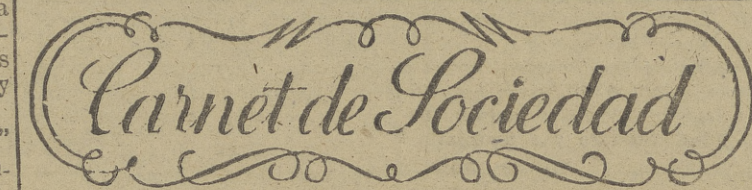 a
s
y
„
Carnet de Sociedad